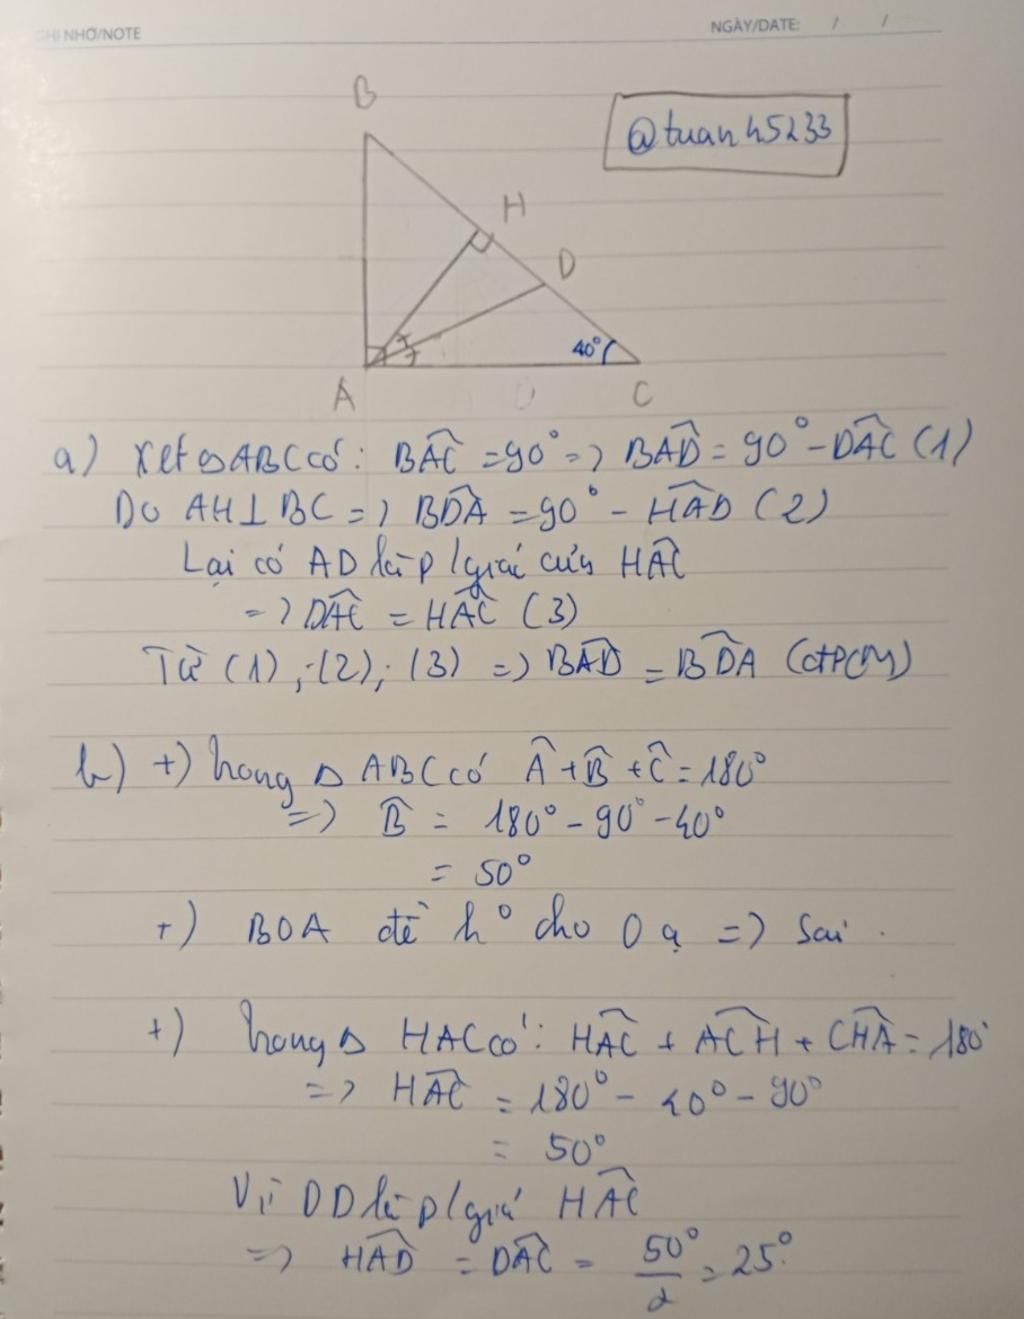 GHI NHỚ/NOTE
NGÀY/DATE: / /
@tuan45233
B
H
D
40°
A
C
a) Xét △ABC có: BAC = 90° => BAD = 90° - DAC (1)
Do AH ⊥ BC => BDA = 90° - HAD (2)
Lại có AD là p/giác của HAC
=> DAC = HAC (3)
Từ (1); (2); (3) => BAD = BDA (đPCM)
b) +) trong △ ABC có A + B + C = 180°
=> B = 180° - 90° - 40°
= 50°
+) BOA đề k° cho O ạ => Sai.
+) trong △ HAC có: HAC + ACH + CHA = 180°
=> HAC = 180° - 40° - 90°
= 50°
Vì DD là p/giá HAC
=> HAD = DAC = 50°/2 = 25°.